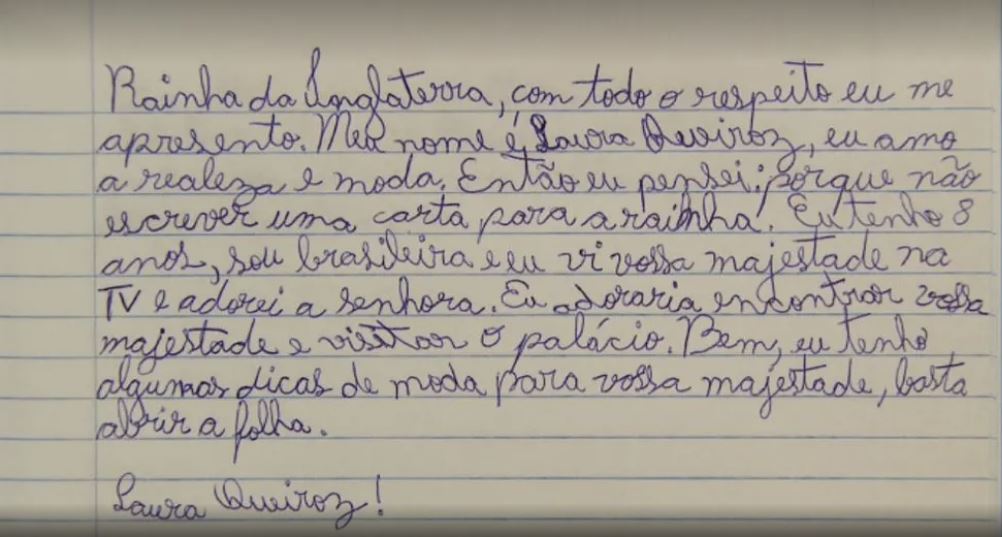 Rainha da Inglaterra, com todo o respeito eu me
apresento. Meu nome é Laura Queiroz, eu amo
a realeza e moda. Então eu pensei: porque não
escrever uma carta para a rainha! Eu tenho 8
anos, sou brasileira e eu vi vossa majestade na
TV e adorei a senhora. Eu adoraria encontrar vossa
majestade e visitar o palácio. Bem, eu tenho
algumas dicas de moda para vossa majestade, basta
abrir a folha.
Laura Queiroz!